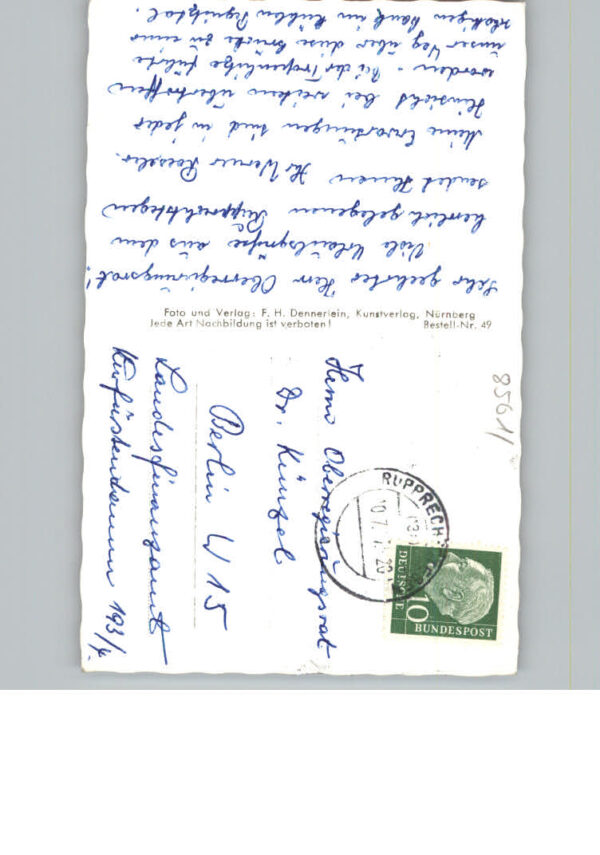 Sehr geehrter Herr Oberregierungsrat!
Viele Urlaubsgrüße aus dem
herrlich gelegenen Rupprechtstegen
sendet Ihnen Ihr Werner Roessler.
Meine Erwartungen sind in jeder
Hinsicht bei weitem übertroffen
worden. - Bei der Tropenhitze führte
unser Weg über diese Brücke zu einer
schattigen Bank im kühlen Pegnitztal.
Foto und Verlag: F. H. Dennerlein, Kunstverlag, Nürnberg
Jede Art Nachbildung ist verboten! Bestell-Nr. 49
Herrn Oberregierungsrat
Dr. Künzel
Berlin W 15
Landesfinanzamt
Kurfürstendamm 193/4.
8561/
RUPPRECH
DEUTSCHE
BUNDESPOST
10